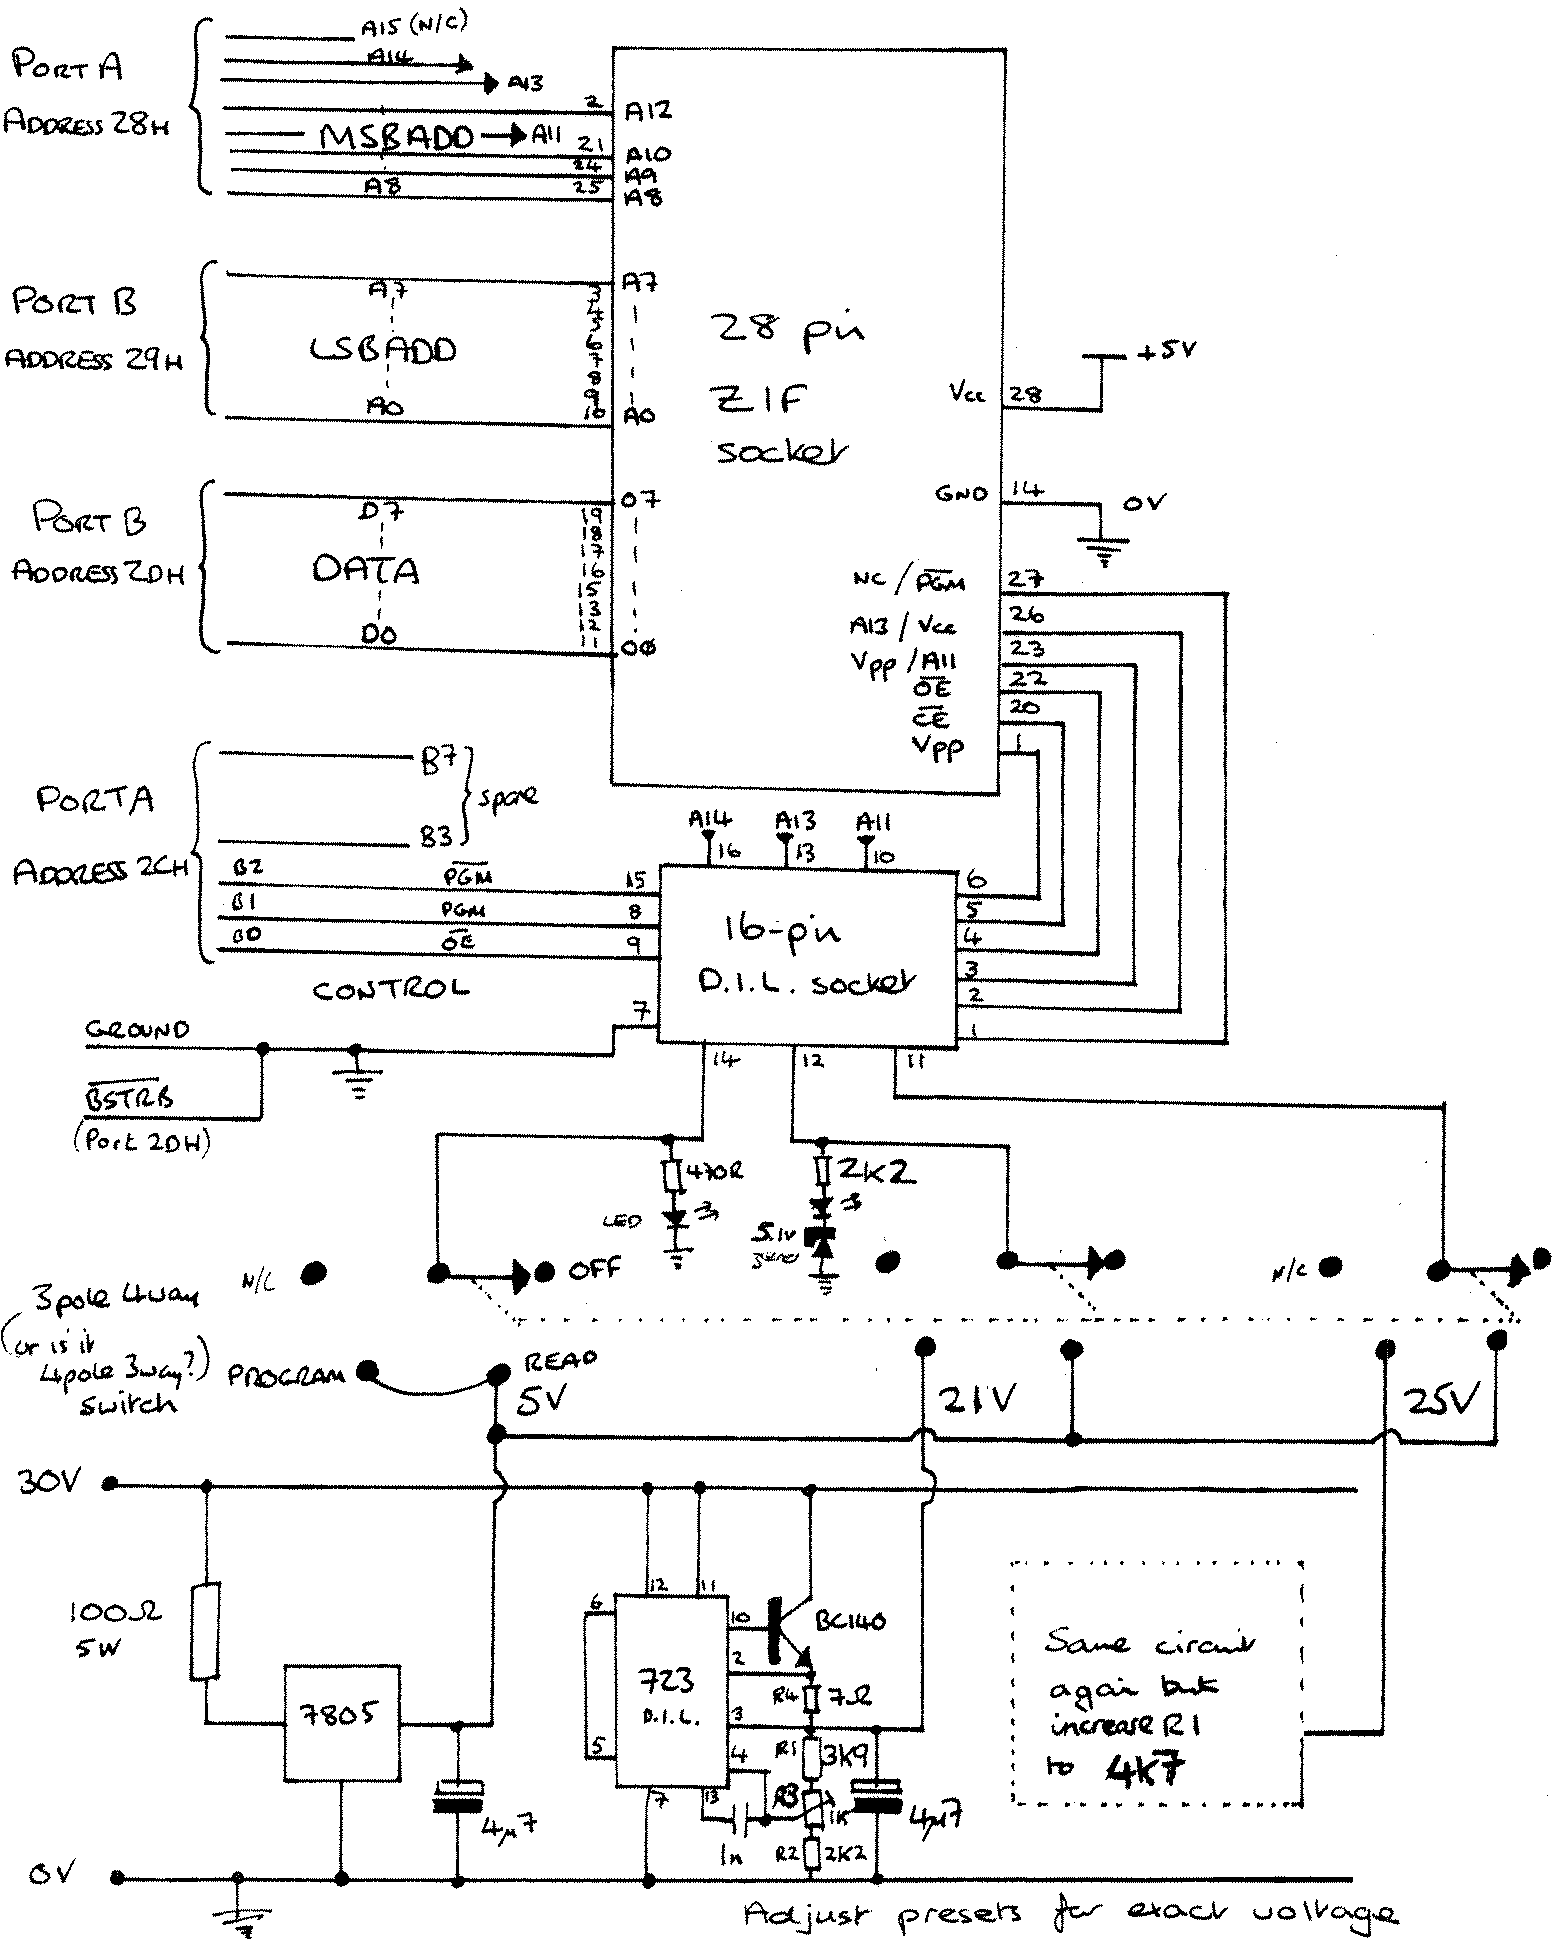 A15 (N/C)
A14
A13
PORT A
ADDRESS 28H
2
A12
MSBADD
A11
21
A10
24
A9
A8
25
A8
PORT B
ADDRESS 29H
A7
LSBADD
A0
3
4
5
6
7
8
9
10
A7
A0
28 pin
ZIF
socket
Vcc
28
+5V
GND
14
0V
PORT B
ADDRESS 2DH
D7
DATA
D0
19
18
17
16
15
13
12
11
O7
O0
NC / PGM
27
A13 / Vcc
26
Vpp / A11
23
OE
22
CE
20
Vpp
1
PORT A
ADDRESS 2CH
B7
B3
spare
B2
PGM
15
B1
PGM
8
B0
OE
9
CONTROL
A14
A13
A11
16
13
10
16-pin
D.I.L. socket
6
5
4
3
2
1
7
14
12
11
GROUND
BSTRB
(Port 2DH)
470R
LED
2K2
5.1v
zener
N/C
OFF
N/C
3pole 4way
(or is it
4pole 3way?)
switch
PROGRAM
READ
5V
21V
25V
30V
100Ω
5W
7805
4μ7
6
5
12
11
723
D.I.L.
10
2
3
4
7
13
BC140
R4
7Ω
R1
3K9
R3
1K
R2
2K2
1n
4μ7
Same circuit
again but
increase R1
to 4K7
0V
Adjust presets for exact voltage